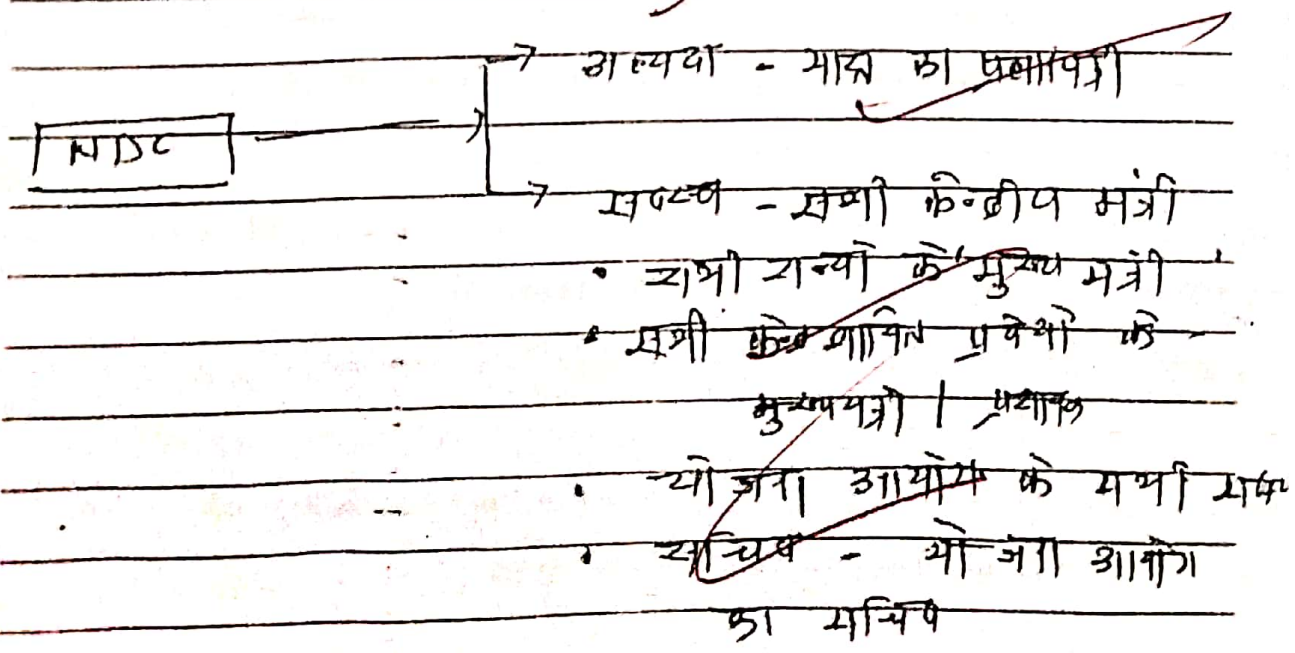 अध्यक्ष - भारत का प्रधानमंत्री
NDC
सदस्य - सभी केन्द्रीय मंत्री
• सभी राज्यों के मुख्य मंत्री
• सभी केन्द्र शासित प्रदेशों के
मुख्यमंत्री / प्रशासक
• योजना आयोग के सभी सदस्य
• सचिव - योजना आयोग
का सचिव